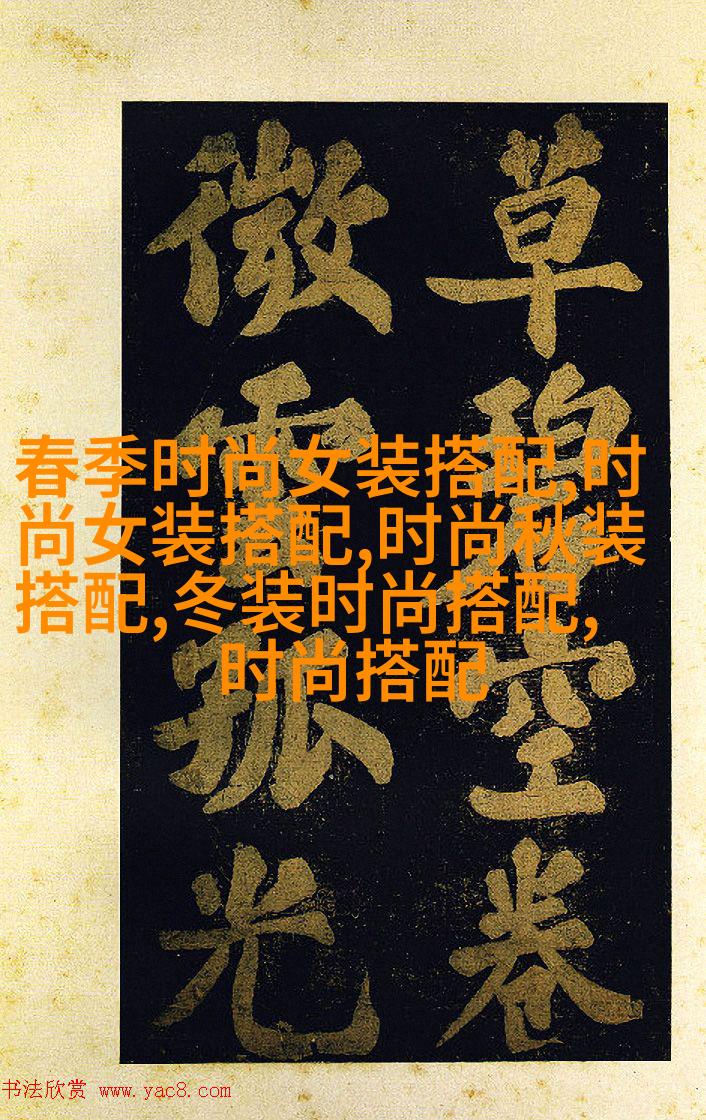 草碧空卷
微雲孤光
春季时尚女装搭配,时
尚女装搭配,时尚秋装
搭配,冬装时尚搭配,
时尚搭配
书法欣赏 www.yac8.com